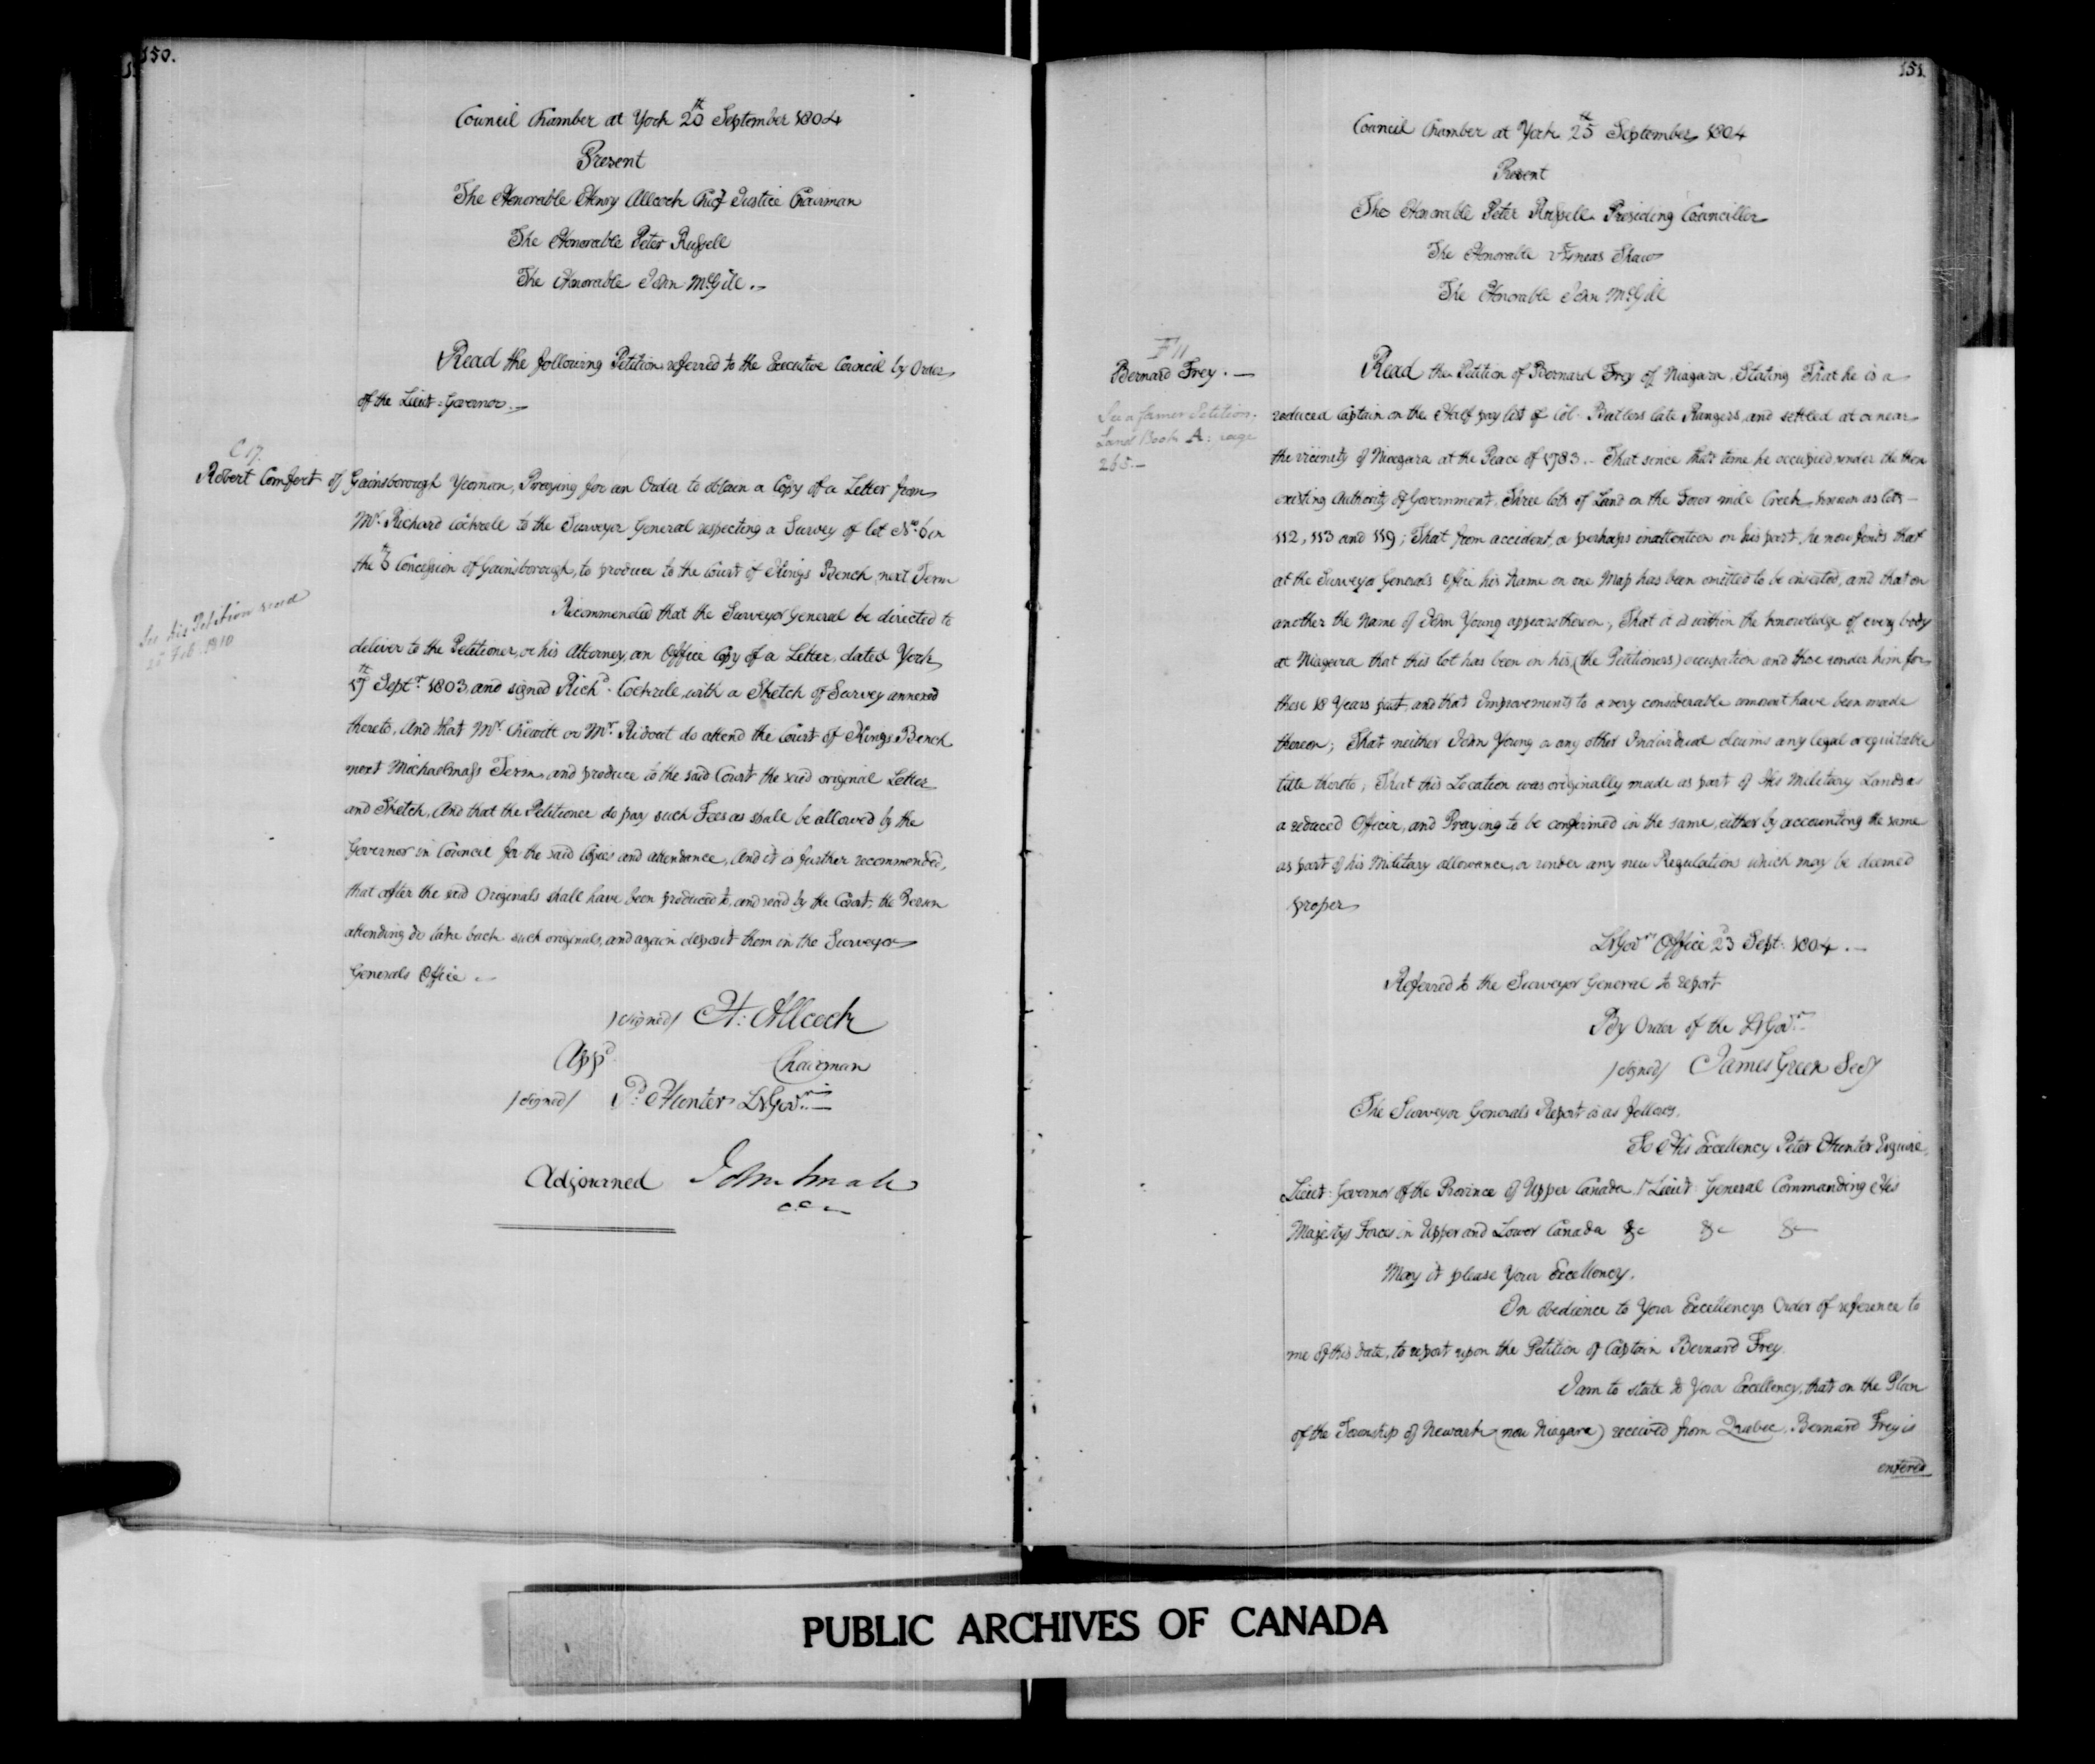 150.
Council Chamber at York 20th September 1804
Present
The Honorable Henry Allcock Chief Justice Chairman
The Honorable Peter Russell
The Honorable John McGill
Read the following Petition referred to the Executive Council by Order
of the Lieut: Governor
C 17.
Robert Comfort of Gainsborough Yeoman, Praying for an Order to obtain a Copy of a Letter from
Mr. Richard Cockrele to the Surveyor General respecting a Survey of lot No. 6 in
the 6th Concession of Gainsborough, to produce to the Court of Kings Bench, next Term
Recommended that the Surveyor General be directed to
See his Petition read
25 Feb. 1810
deliver to the Petitioner, or his Attorney, an Office Copy of a Letter, dated York,
17th Septr. 1803, and signed Richd. Cockrele, with a Sketch of Survey annexed
thereto, And that Mr. Chewett or Mr. Ridout do attend the Court of Kings Bench
next Michaelmass Term, and produce to the said Court the said original Letter
and Sketch, And that the Petitioner do pay such Fees as shall be allowed by the
Governor in Council for the said Copies and attendance, And it is further recommended,
that after the said Originals shall have been produced to, and read by the Court, the Person
attending do take back such originals, and again deposit them in the Surveyor
Generals Office
/signed/ H: Allcock
Appd. Chairman
/signed/ P. Hunter Lt Govr.
Adjourned John Small
C.E.C.
151.
Council Chamber at York 25th September 1804
Present
The Honorable Peter Russell Presiding Councillor
The Honorable Æneas Shaw
The Honorable John McGill
F 11
Bernard Frey. Read the Petition of Bernard Frey of Niagara, Stating That he is a
See a former Petition,
Land Book A: page
265.
reduced Captain on the Half pay list of Col. Butlers late Rangers, and settled at or near
the vicinity of Niagara at the Peace of 1783. That since that time he occupied under the then
existing Authority of Government, Three lots of Land on the Four mile Creek, known as lots
112, 113 and 119; That from accident, or perhaps inattention on his part, he now finds that
at the Surveyor Generals Office his name on one Map has been omitted to be inserted, and that on
another the Name of John Young appears thereon; That it is within the knowledge of every body
at Niagara that this lot has been in his, (the Petitioners) occupation and those under him for
these 18 Years past, and that Improvements to a very considerable amount have been made
thereon; That neither John Young or any other Individual claims any legal or equitable
title thereto; That this Location was originally made as part of His Military Lands as
a reduced Officer, and Praying to be confirmed in the same, either by accounting the same
as part of his Military allowance, or under any new Regulations which may be deemed
proper
Lt Govrs. Office 23d Sept. 1804.
Referred to the Surveyor General to report
By Order of the Lt Govr.
/signed/ James Green Secy
The Surveyor Generals Report is as follows,
To His Excellency Peter Hunter Esquire,
Lieut: Governor of the Province of Upper Canada, Lieut: General Commanding His
Majestys Forces in Upper and Lower Canada &c &c &c
May it please Your Excellency,
In obedience to Your Excellencys Order of reference to
me of this date, to report upon the Petition of Captain Bernard Frey.
I am to state to Your Excellency, that on the Plan
of the Township of Newark (now Niagara) received from Quebec, Bernard Frey is
entered
PUBLIC ARCHIVES OF CANADA